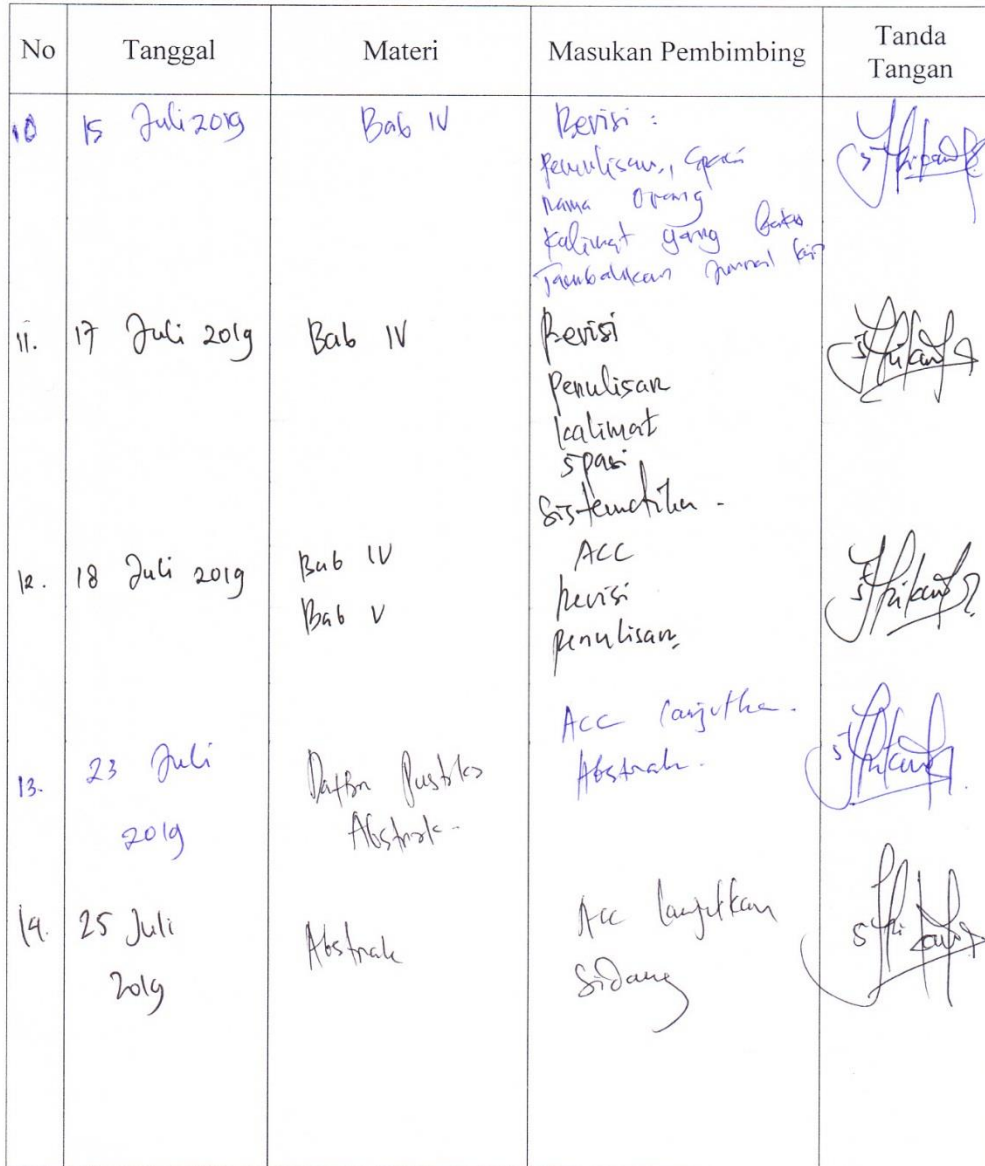 No Tanggal Materi Masukan Pembimbing Tanda Tangan
10 15 Juli 2019 Bab IV Revisi :
penulisan, spasi
nama orang
kalimat yang baku
Tambahkan jurnal
11. 17 Juli 2019 Bab IV Revisi
penulisan
kalimat
spasi
Sistematika -
12. 18 Juli 2019 Bab IV ACC
Bab V revisi
penulisan
13. 23 Juli 2019 Daftar Pustaka ACC lanjutka -
Abstrak - Abstrak -
14. 25 Juli 2019 Abstrak Acc lanjutkan
Sidang